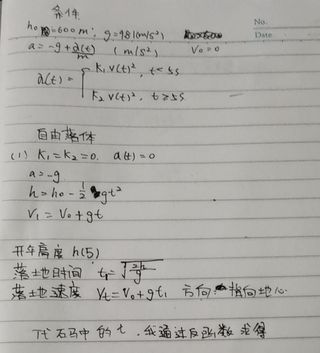 No.
Date
条件
h₀=600m, g=9.81(m/s²)
a=-g+a(t)/m (m/s²) V₀=0
a(t)={ k₁v(t)², t<5s
k₂v(t)², t≥5s
自由落体
(1) k₁=k₂=0. a(t)=0
a=-g
h=h₀-½gt²
V₁=V₀+gt
开伞高度 h(5)
落地时间 t₁=√(2h/g)
落地速度 Vt=V₀+gt₁ 方向 指向地心
代码中的t.我通过反函数求得